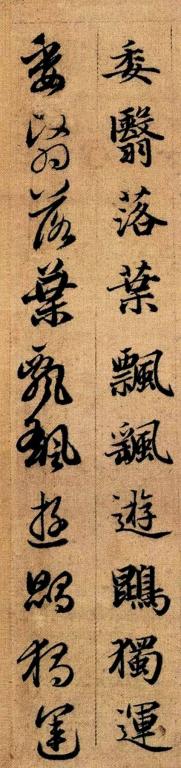 委翳落葉飄颻遊鵾獨運
委翳落葉飄颻遊鵾獨運